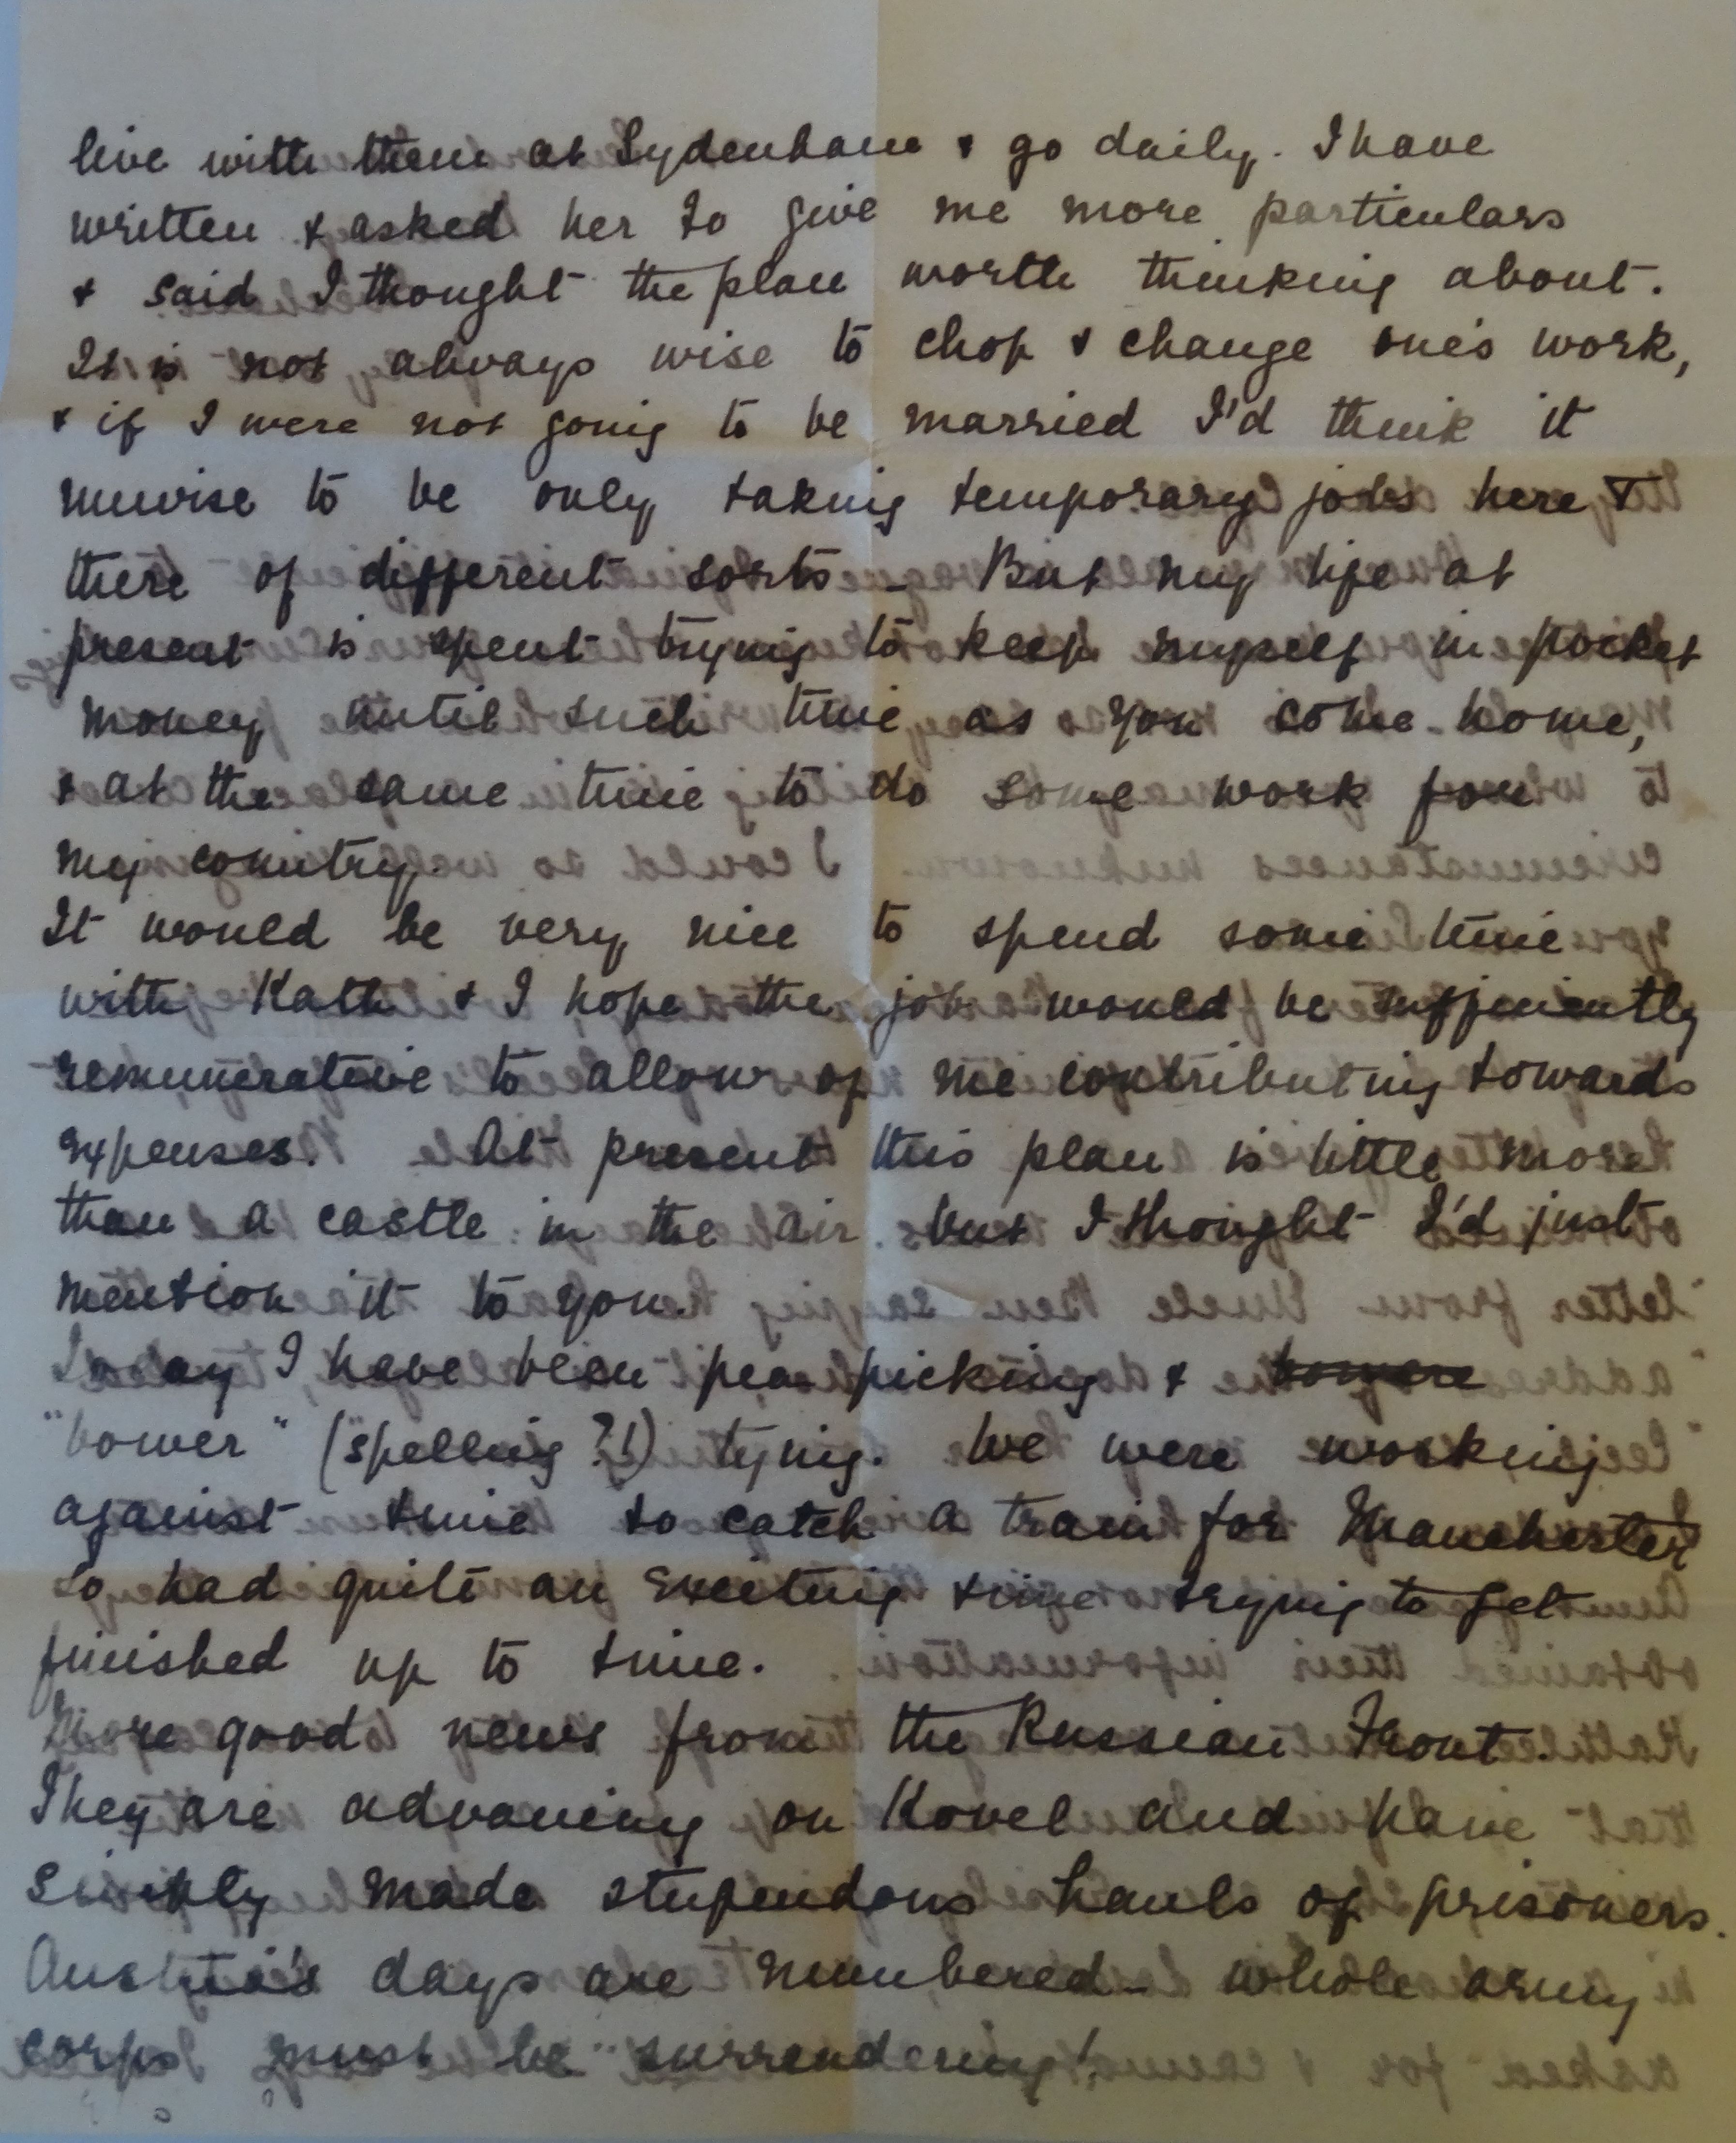 live with them at Sydenham & go daily. I have
written & asked her to give me more particulars
& said I thought the plan worth thinking about.
It is not always wise to chop & change one's work,
& if I were not going to be married I'd think it
unwise to be only taking temporary jobs here &
there of different sorts – But my life at
present is spent trying to keep myself in pocket
money until such time as you come home,
& at the same time to do some work for
my country.
It would be very nice to spend some time
with Kath & I hope the job would be sufficiently
remunerative to allow of me contributing towards
expenses. At present this plan is little more
than a castle in the air but I thought I'd just
mention it to you.
Today I have been pea picking &
"bower" (spelling?!) tying. We were working
against time to catch a train for Manchester
so had quite an exciting time trying to get
finished up to time.
More good news from the Russian Front.
They are advancing on Kovel and have
simply made stupendous hauls of prisoners.
Austria's days are numbered – whole army
corps must be surrendering!